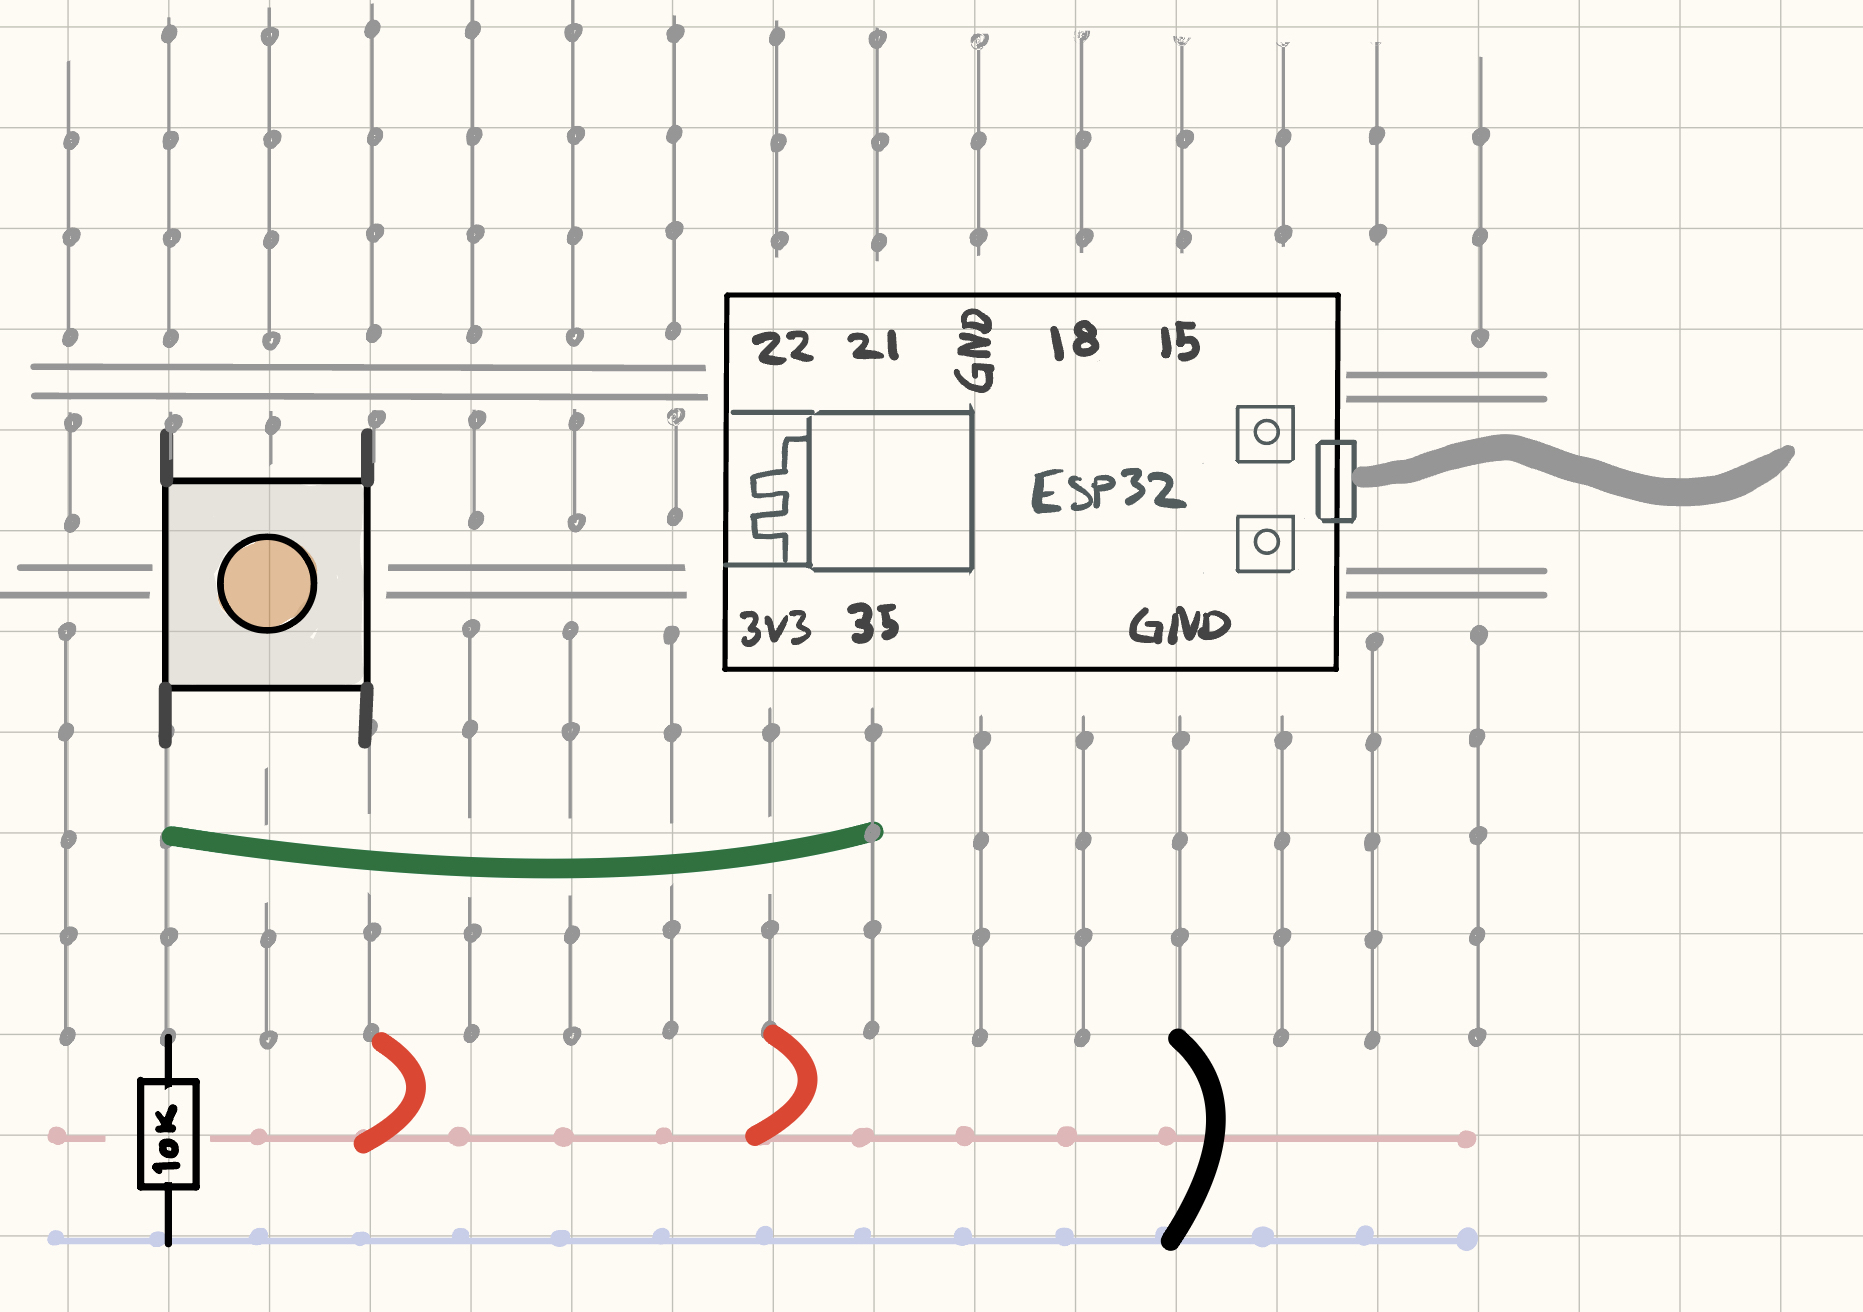 22 21 GND 18 15
ESP32
3V3 35 GND
10K